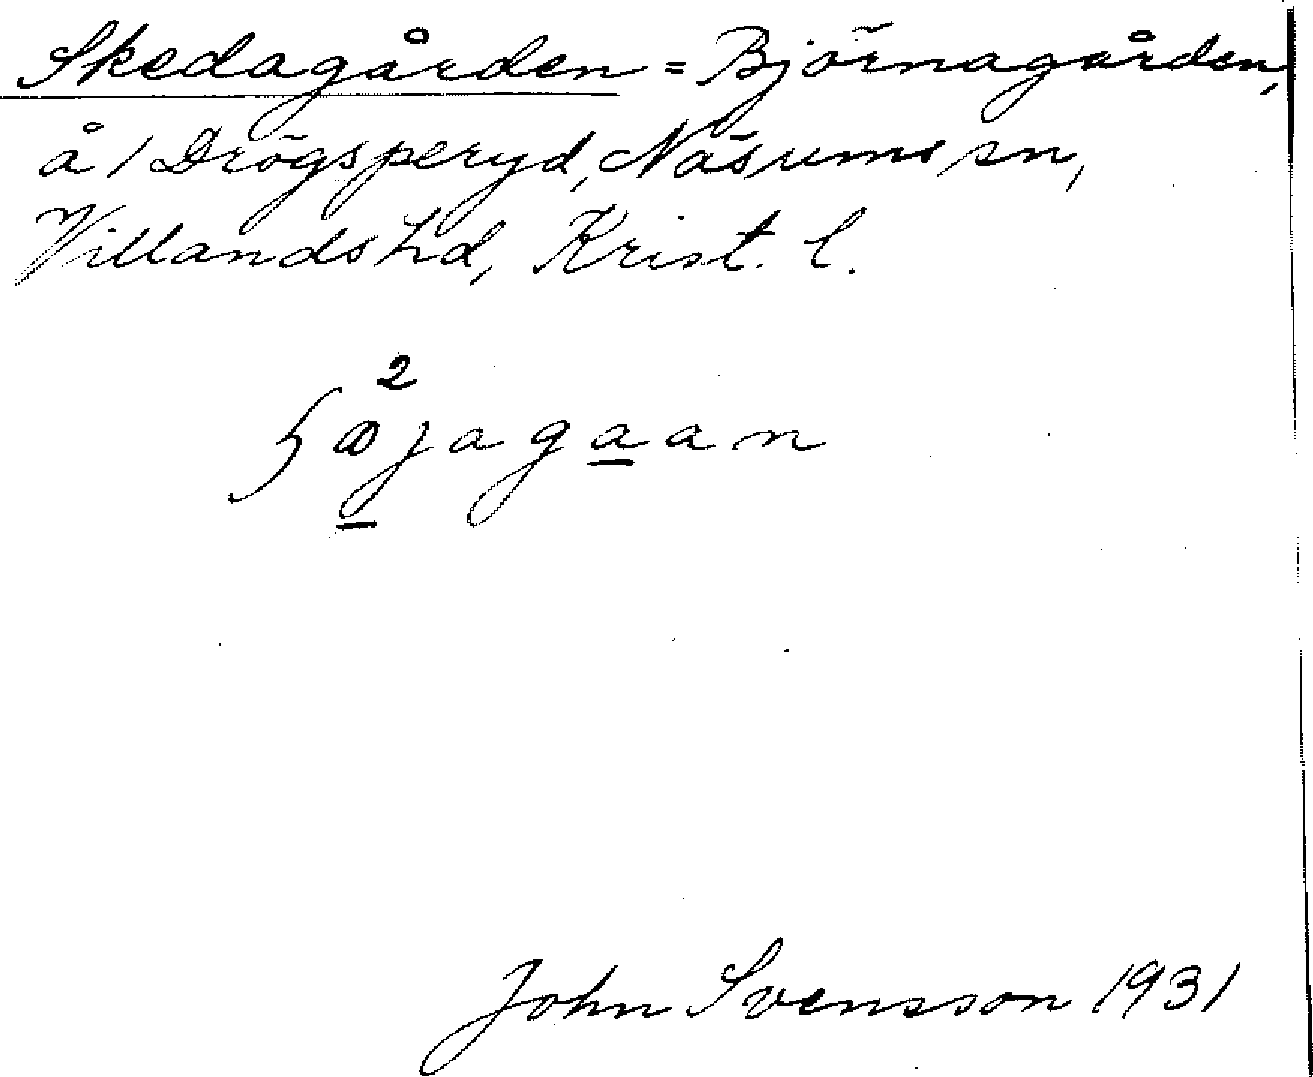 Skedagården = Björnagården,
å 1 Drögsperyd, Näsums sn,
Villands hd, Krist. l.
John Svensson 1931